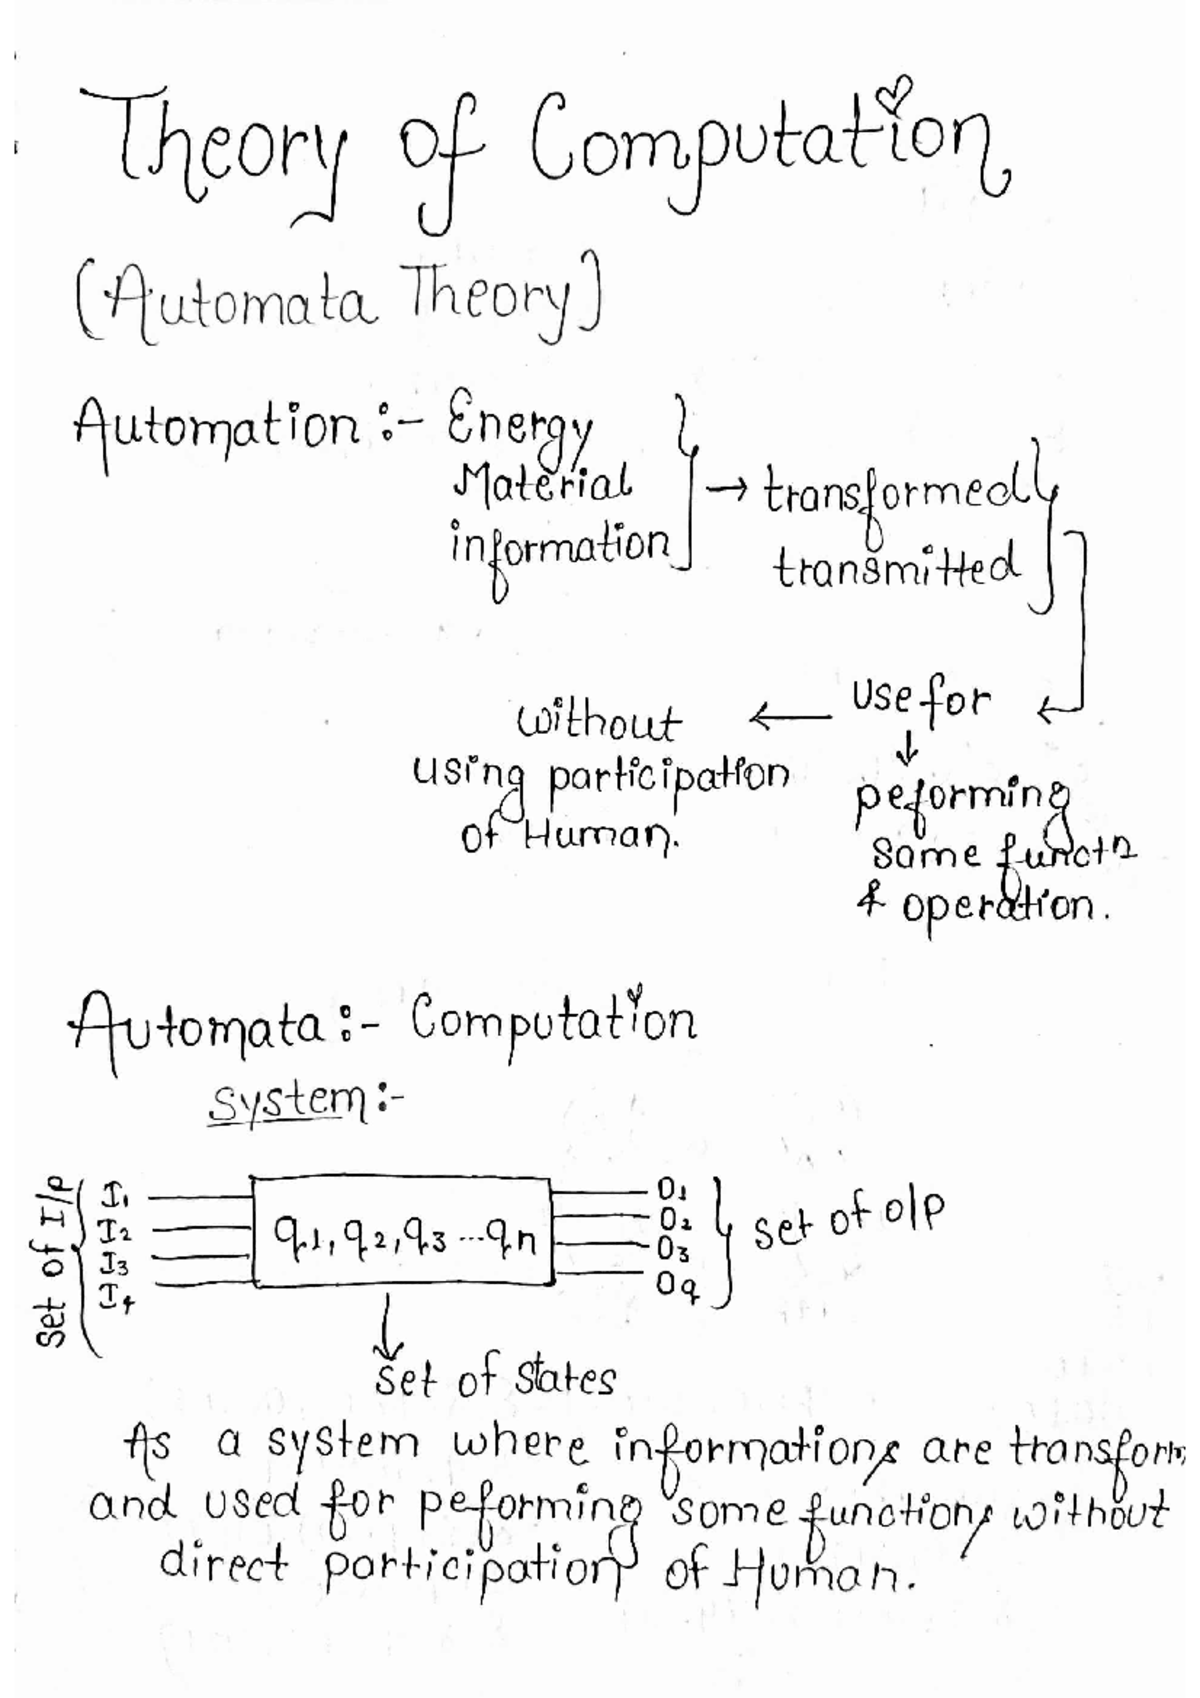 Theory of Computation
(Automata Theory)
Automation :- Energy
Material
information
→ transformed
transmitted
use for
↓
peforming
same functn
& operation.
← without
using participation
of Human.
Automata :- Computation
System :-
Set of I/p
I1
I2
I3
I4
q1, q2, q3 ... qn
O1
O2
O3
Oq
set of o/p
set of states
As a system where informations are transform
and used for peforming some functions without
direct participation of Human.